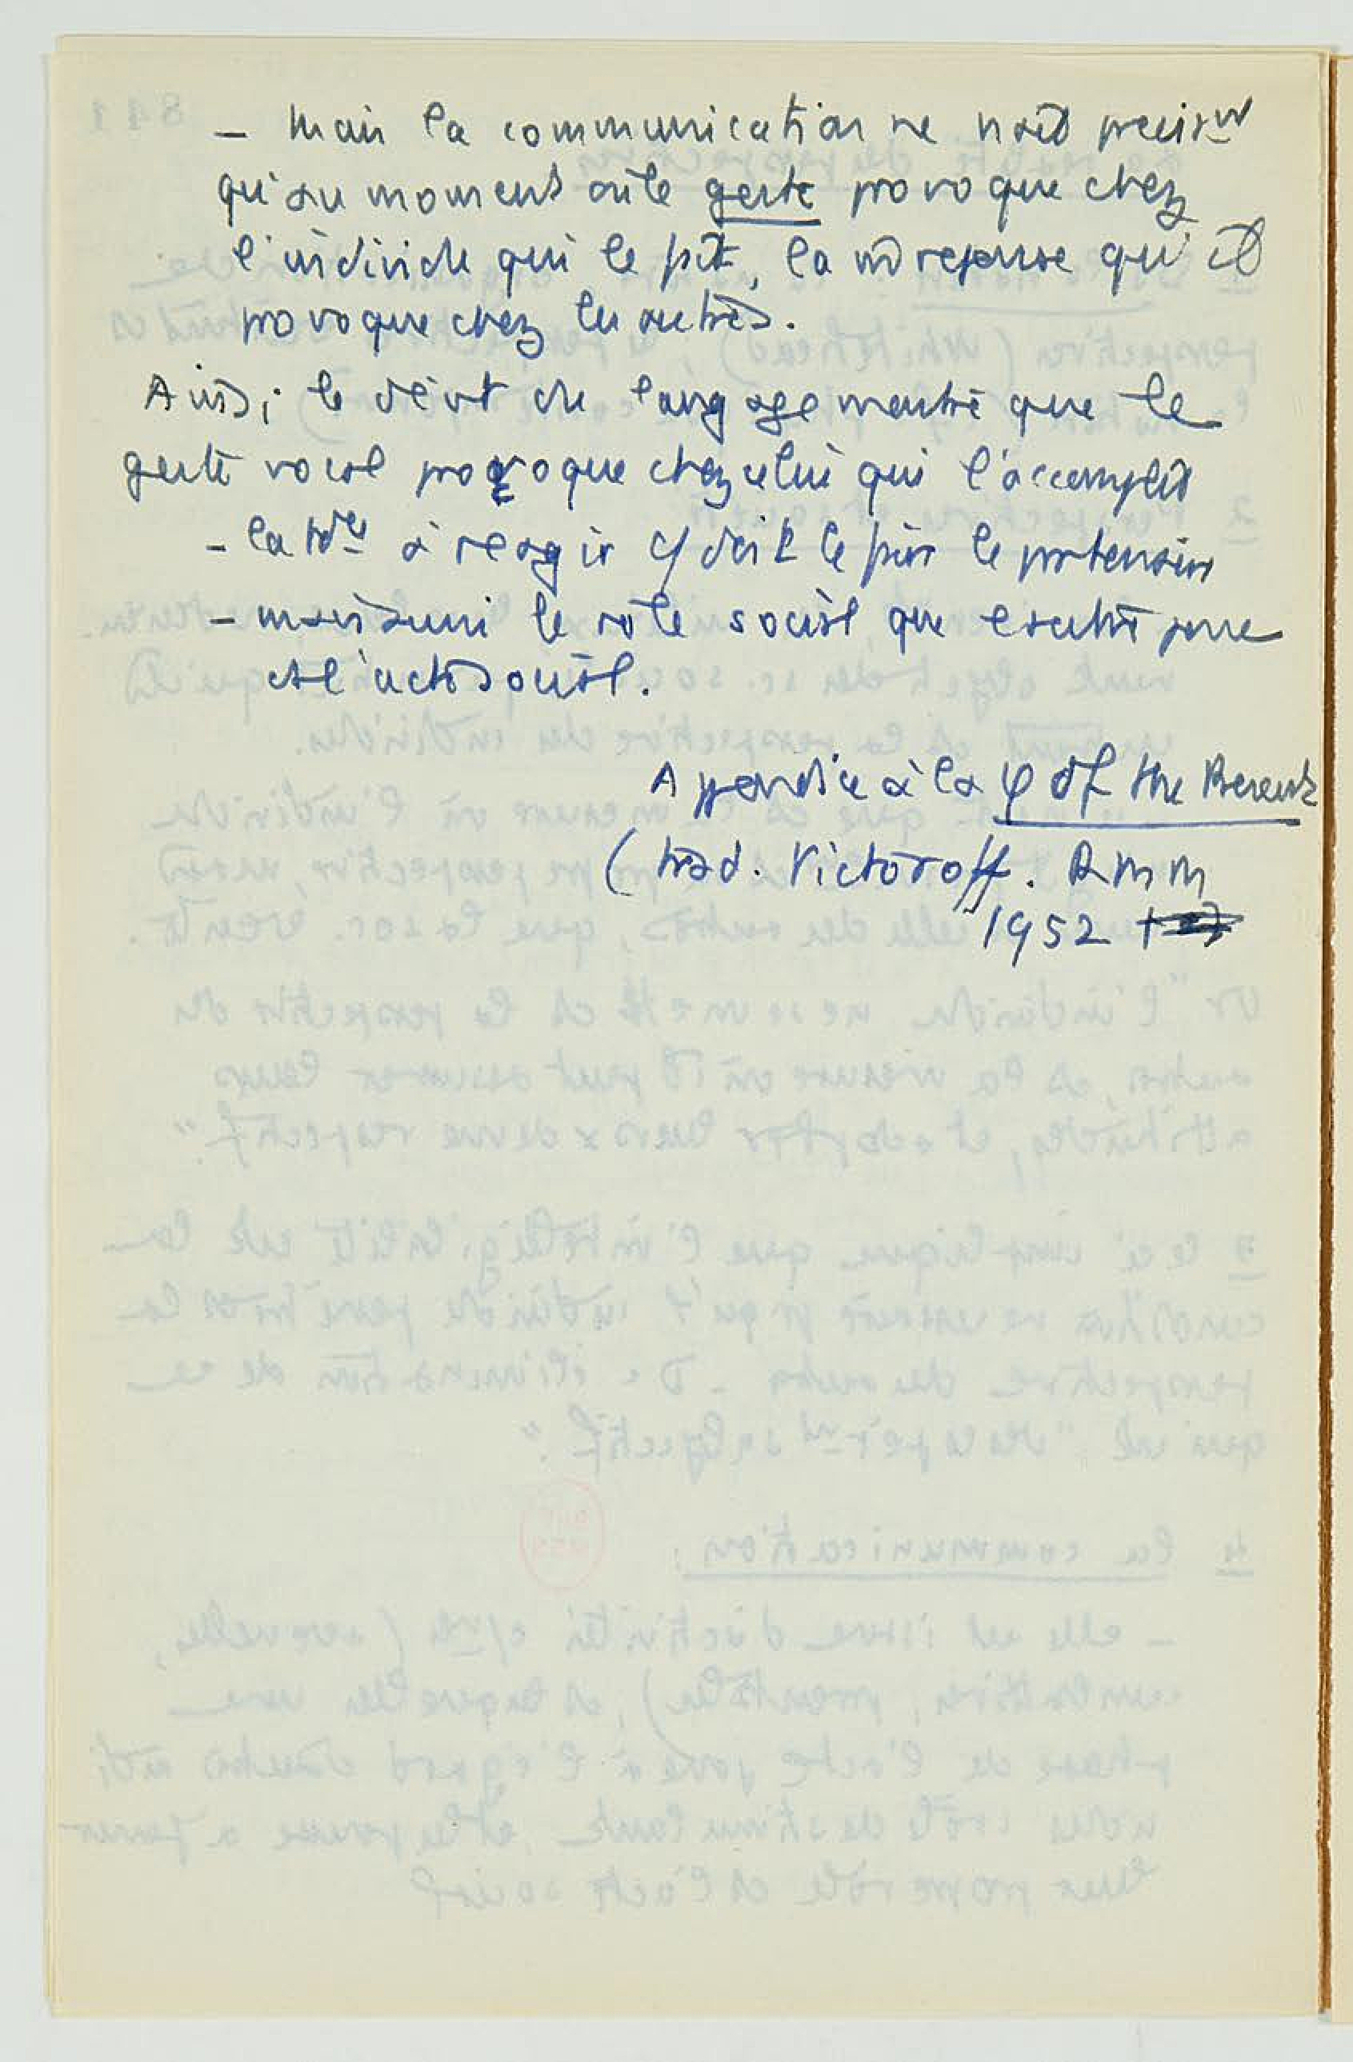 - Mais la communication ne naît précisnt
qu'au moment où le geste provoque chez
l'individu qui le fait, la m̂ réponse qu'il
provoque chez les autres.
Ainsi, le dévt du langage montre que le
geste vocal provoque chez celui qui l'accomplit
- la tdce à réagir c/ doit le faire le partenaire
- mais aussi le rôle social que l'autre joue
ds l'acte social.
Appendice à la φ of the Present
(trad. Victoroff. RMM
1952